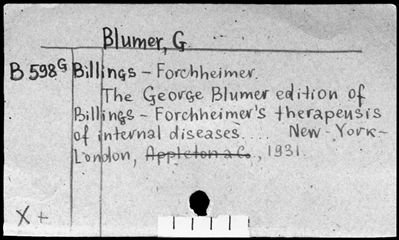 Blumer, G.
B 598G Billings - Forchheimer.
The George Blumer edition of
Billings - Forchheimer's therapeusis
of internal diseases.... New-York-
London, Appleton a. Co., 1931.
X +